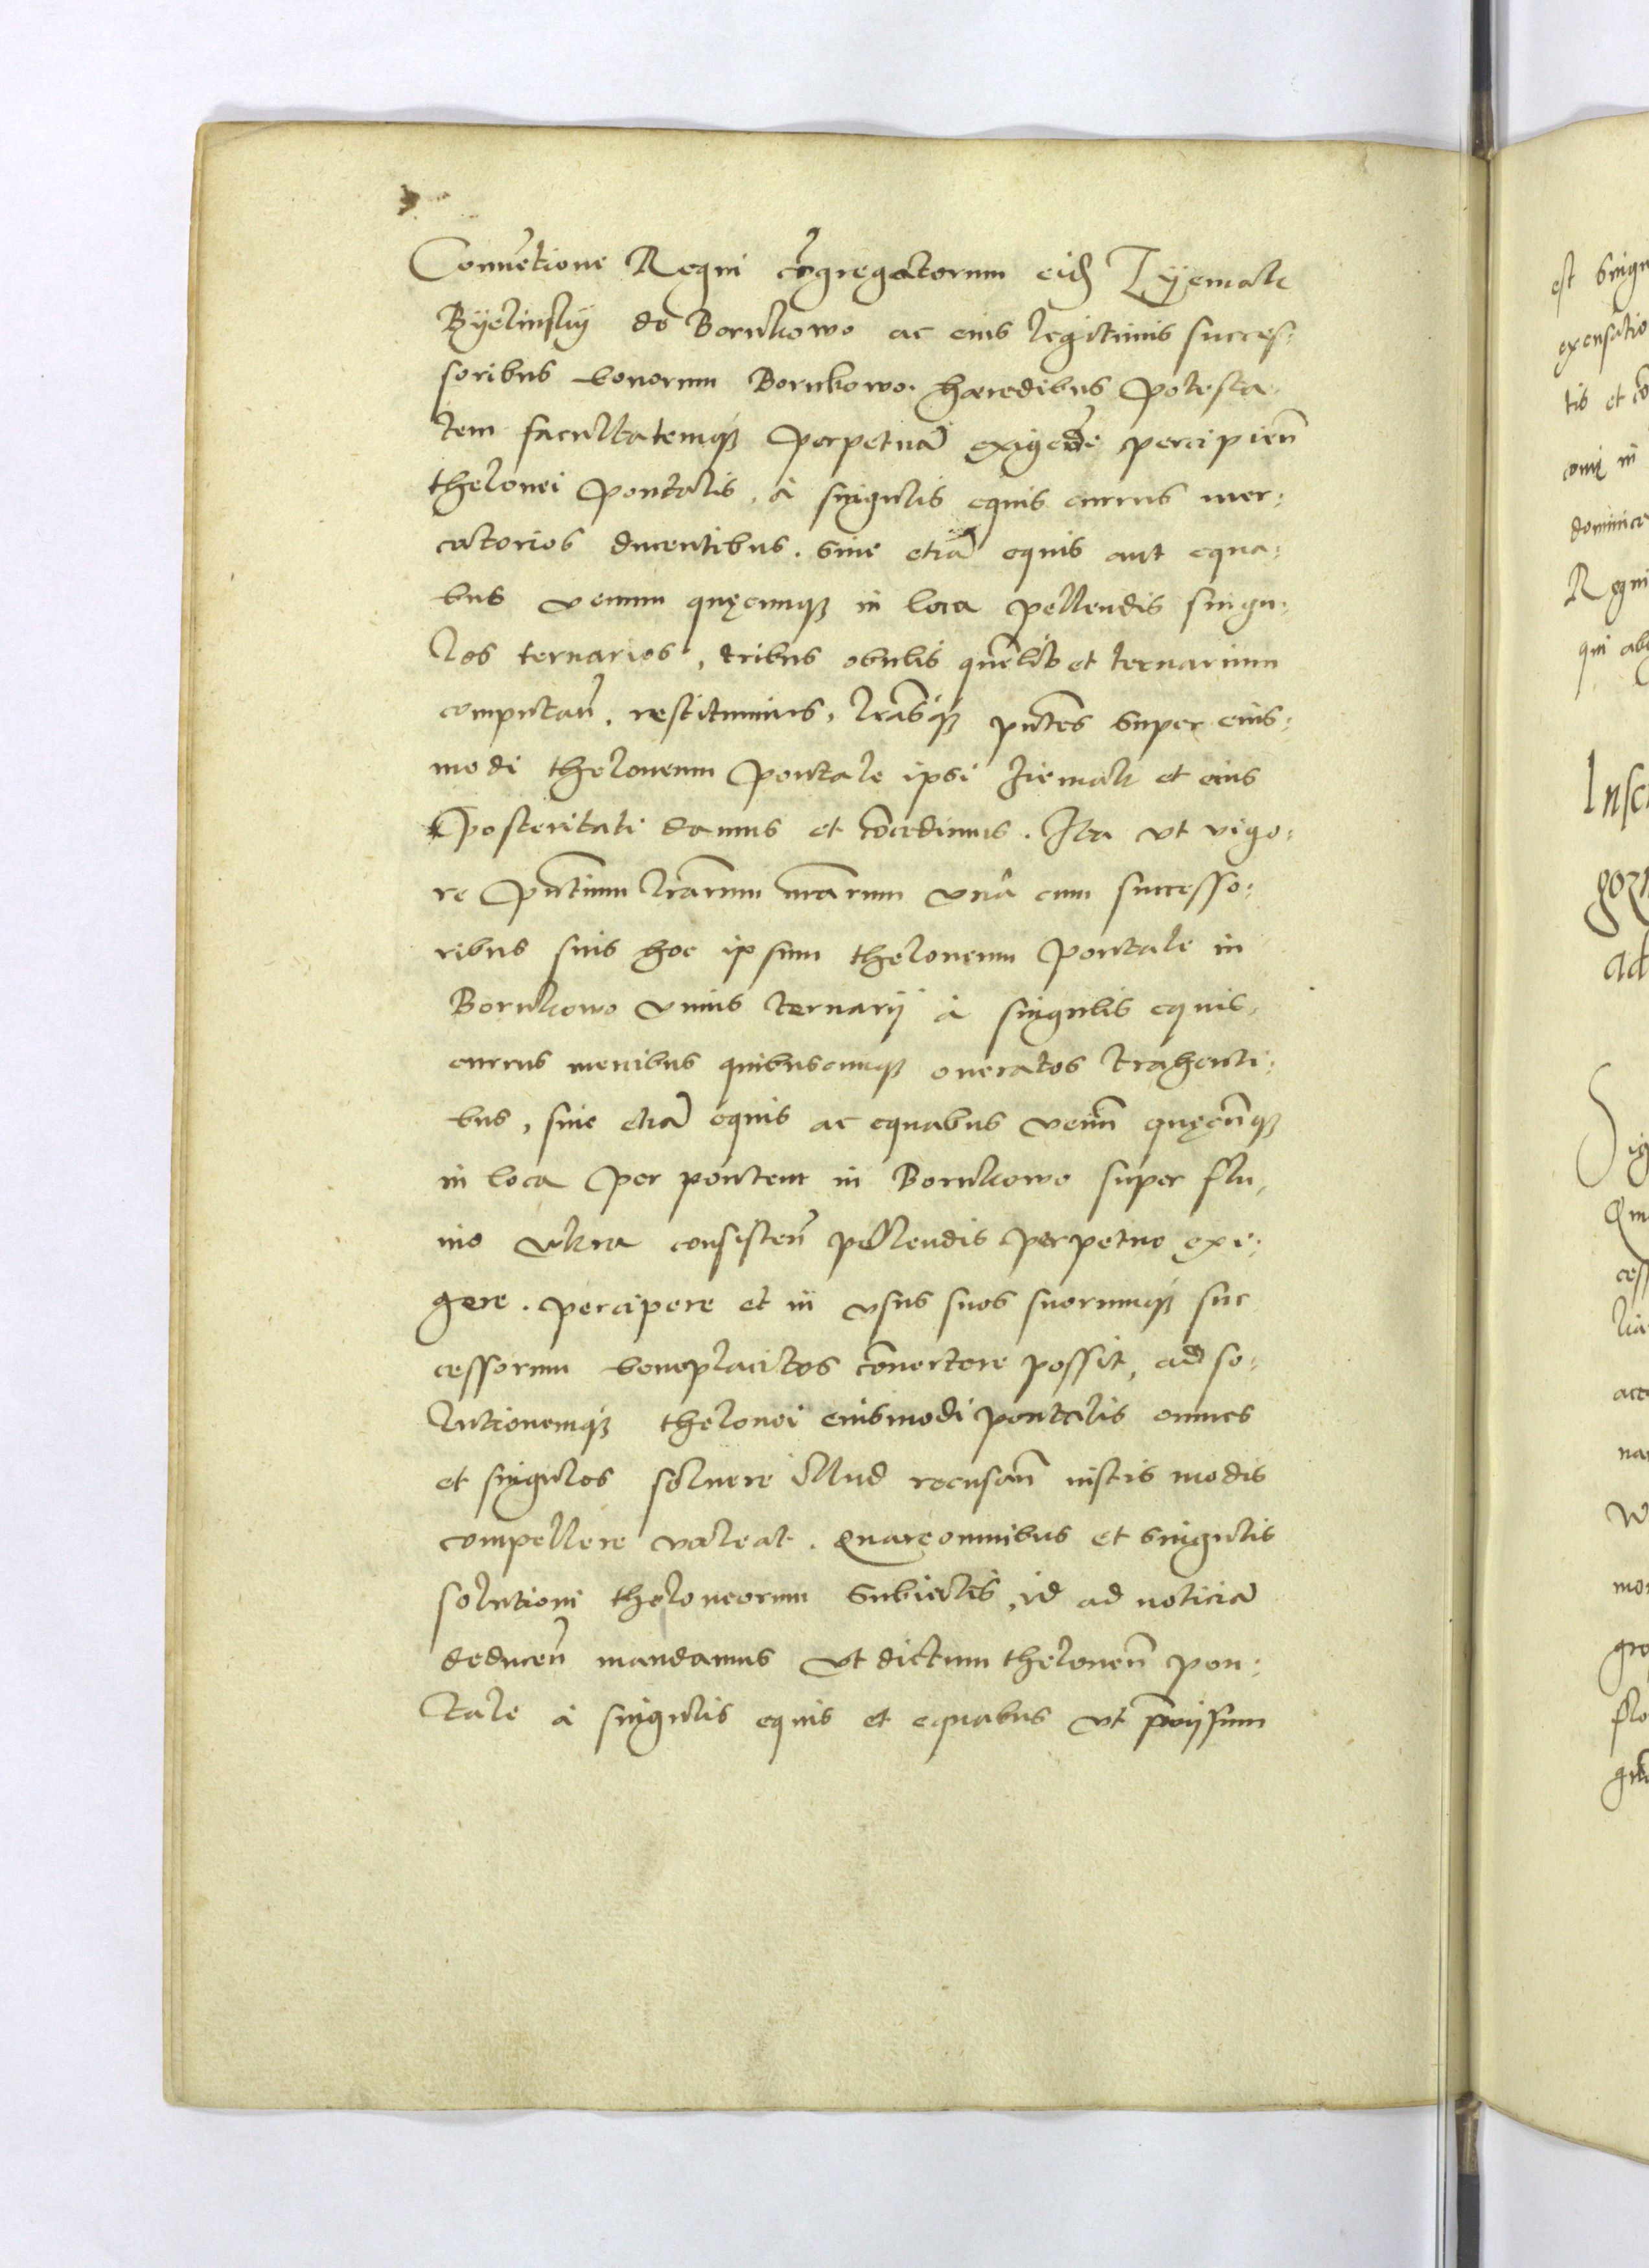 Convẽtione Regni cõgregatorum eid Zyemak
Byelinsky de Bornkowo ac eius legitimis succes:
soribus bonorum Bornkowo hæredibus potesta
tem facultatemq̃ perpetuã exigẽdi percipien̄
thelonei pontalis, à singulis equis currus mer:
catorios ducentibus. Siue etiã equis aut equa:
bus venum quęcumq̃ in loca pellendis singu:
los ternarios, tribus obulis quẽlib et ternarium
computan̄, restituimus, lr̃asq̃ pn̄tes super eius:
modi theloneum pontale ipsi Ziemak et eius
posteritati damus et cõcedimus. Ita vt vigo:
re pn̄tium lr̃arum nr̃arum vnà cum successo:
ribus suis hoc ipsum theloneum pontale in
Bornkowo vnius ternarij à singulis equis,
currus mercibus quibuscumq̃ oneratos trahenti:
bus, siue etiã equis ac equabus venũ quęcũq̃
in loca per pontem in Bornkowo super flu,
uio Wkra consisten̄ pellendis perpetuo exi:
gere. percipere et in vsus suos suorumq̃ suc
cessorum beneplacitos cõuertere possit, ad so:
lutionemq̃ thelonei eiusmodi pontalis omnes
et singulos soluere illud recusan̄ iustis modis
compellere valeat. Quare omnibus et singulis
solutioni theloneorum subiectis, id ad noticiã
deducen̄ mandamus vt dictum theloneũ pon:
tale à singulis equis et equabus vt p̃missum
est singu
excusatio
tis et cõ
in
dominica
Regni
qui
Insc
ad